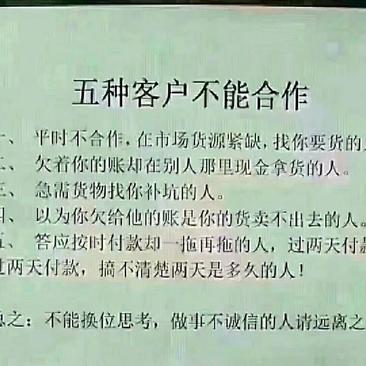 五种客户不能合作
一、 平时不合作，在市场货源紧缺，找你要货的人
二、 欠着你的账却在别人那里现金拿货的人。
三、 急需货物找你补坑的人。
四、 以为你欠给他的账是你的货卖不出去的人。
五、 答应按时付款却一拖再拖的人，过两天付款
过两天付款，搞不清楚两天是多久的人！
总之：不能换位思考，做事不诚信的人请远离之